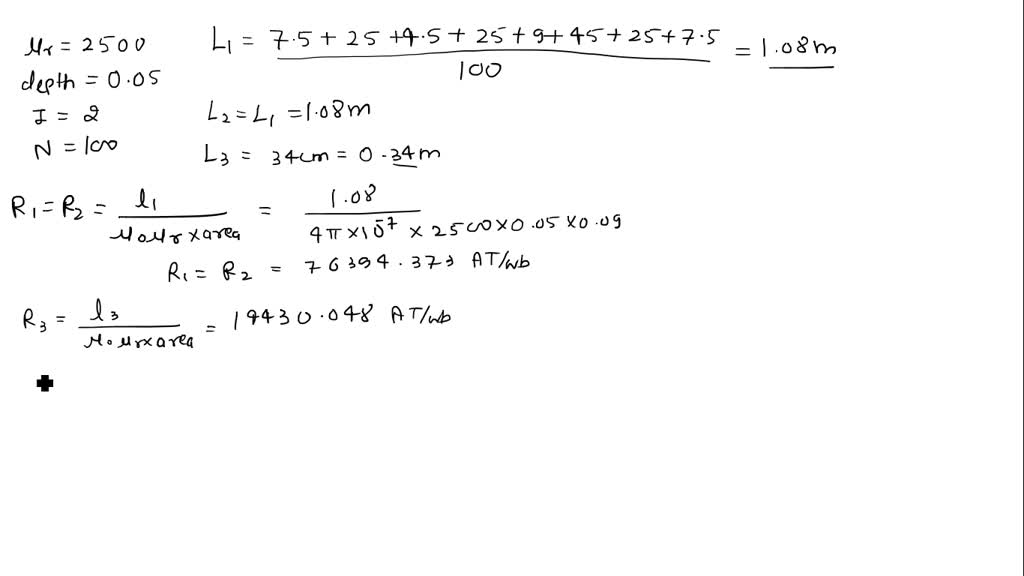 μr = 2500
depth = 0.05
I = 2
N = 100
L1 = (7.5 + 25 + 4.5 + 25 + 9 + 45 + 25 + 7.5) / 100 = 1.08m
L2 = L1 = 1.08m
L3 = 34cm = 0.34m
R1 = R2 = l1 / (μ0μr × area) = 1.08 / (4π × 10^-7 × 2500 × 0.05 × 0.09)
R1 = R2 = 76394.373 AT/wb
R3 = l3 / (μ0μr × area) = 19430.048 AT/wb